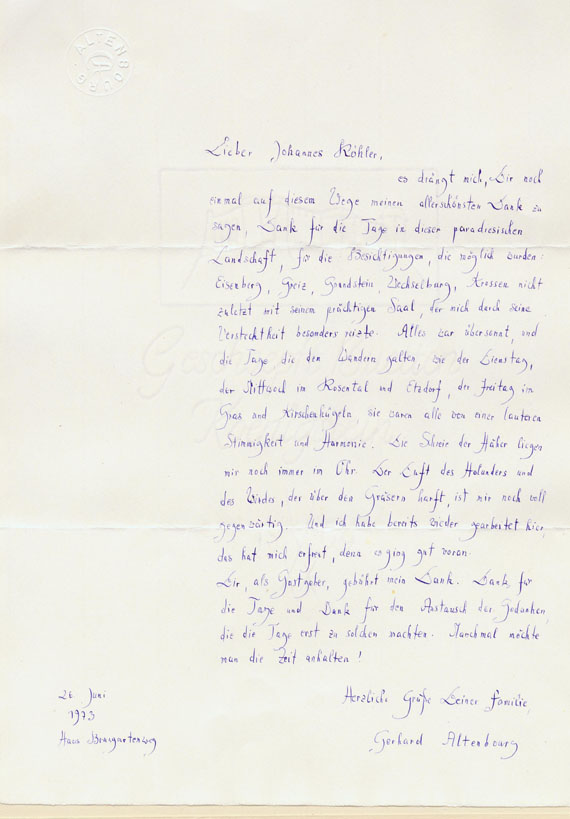 ALTENBOURG
Lieber Johannes Köhler,
es drängt mich, Dir noch
einmal auf diesem Wege meinen allerschönsten Dank zu
sagen, Dank für die Tage in dieser paradiesischen
Landschaft, für die Besichtigungen, die möglich wurden:
Eisenberg, Greiz, Wechselburg, Krossen nicht
zuletzt mit seinem prächtigen Saal, der mich durch seine
Verstecktheit besonders reizte. Alles war übersonnt, und
die Tage die den Wandern galten, wie der Dienstag,
der Mittwoch im Rosental und Etzdorf, der Freitag im
Gras und Kirschenhügeln sie waren alle von einer lauteren
Stimmigkeit und Harmonie. Die Schreie der Häher liegen
mir noch immer im Ohr. Der Duft des Holunders und
des Windes, der über den Gräsern harft, ist mir noch voll
gegenwärtig. Und ich habe bereits wieder gearbeitet hier,
das hat mich erfreut, denn es ging gut voran.
Dir, als Gastgeber, gebührt mein Dank. Dank für
die Tage und Dank für den Austausch der Gedanken,
die die Tage erst zu solchen machten. Manchmal möchte
man die Zeit anhalten!
Herzliche Grüße Deiner Familie,
Gerhard Altenbourg
26 Juni
1973
Haus Braugartenweg